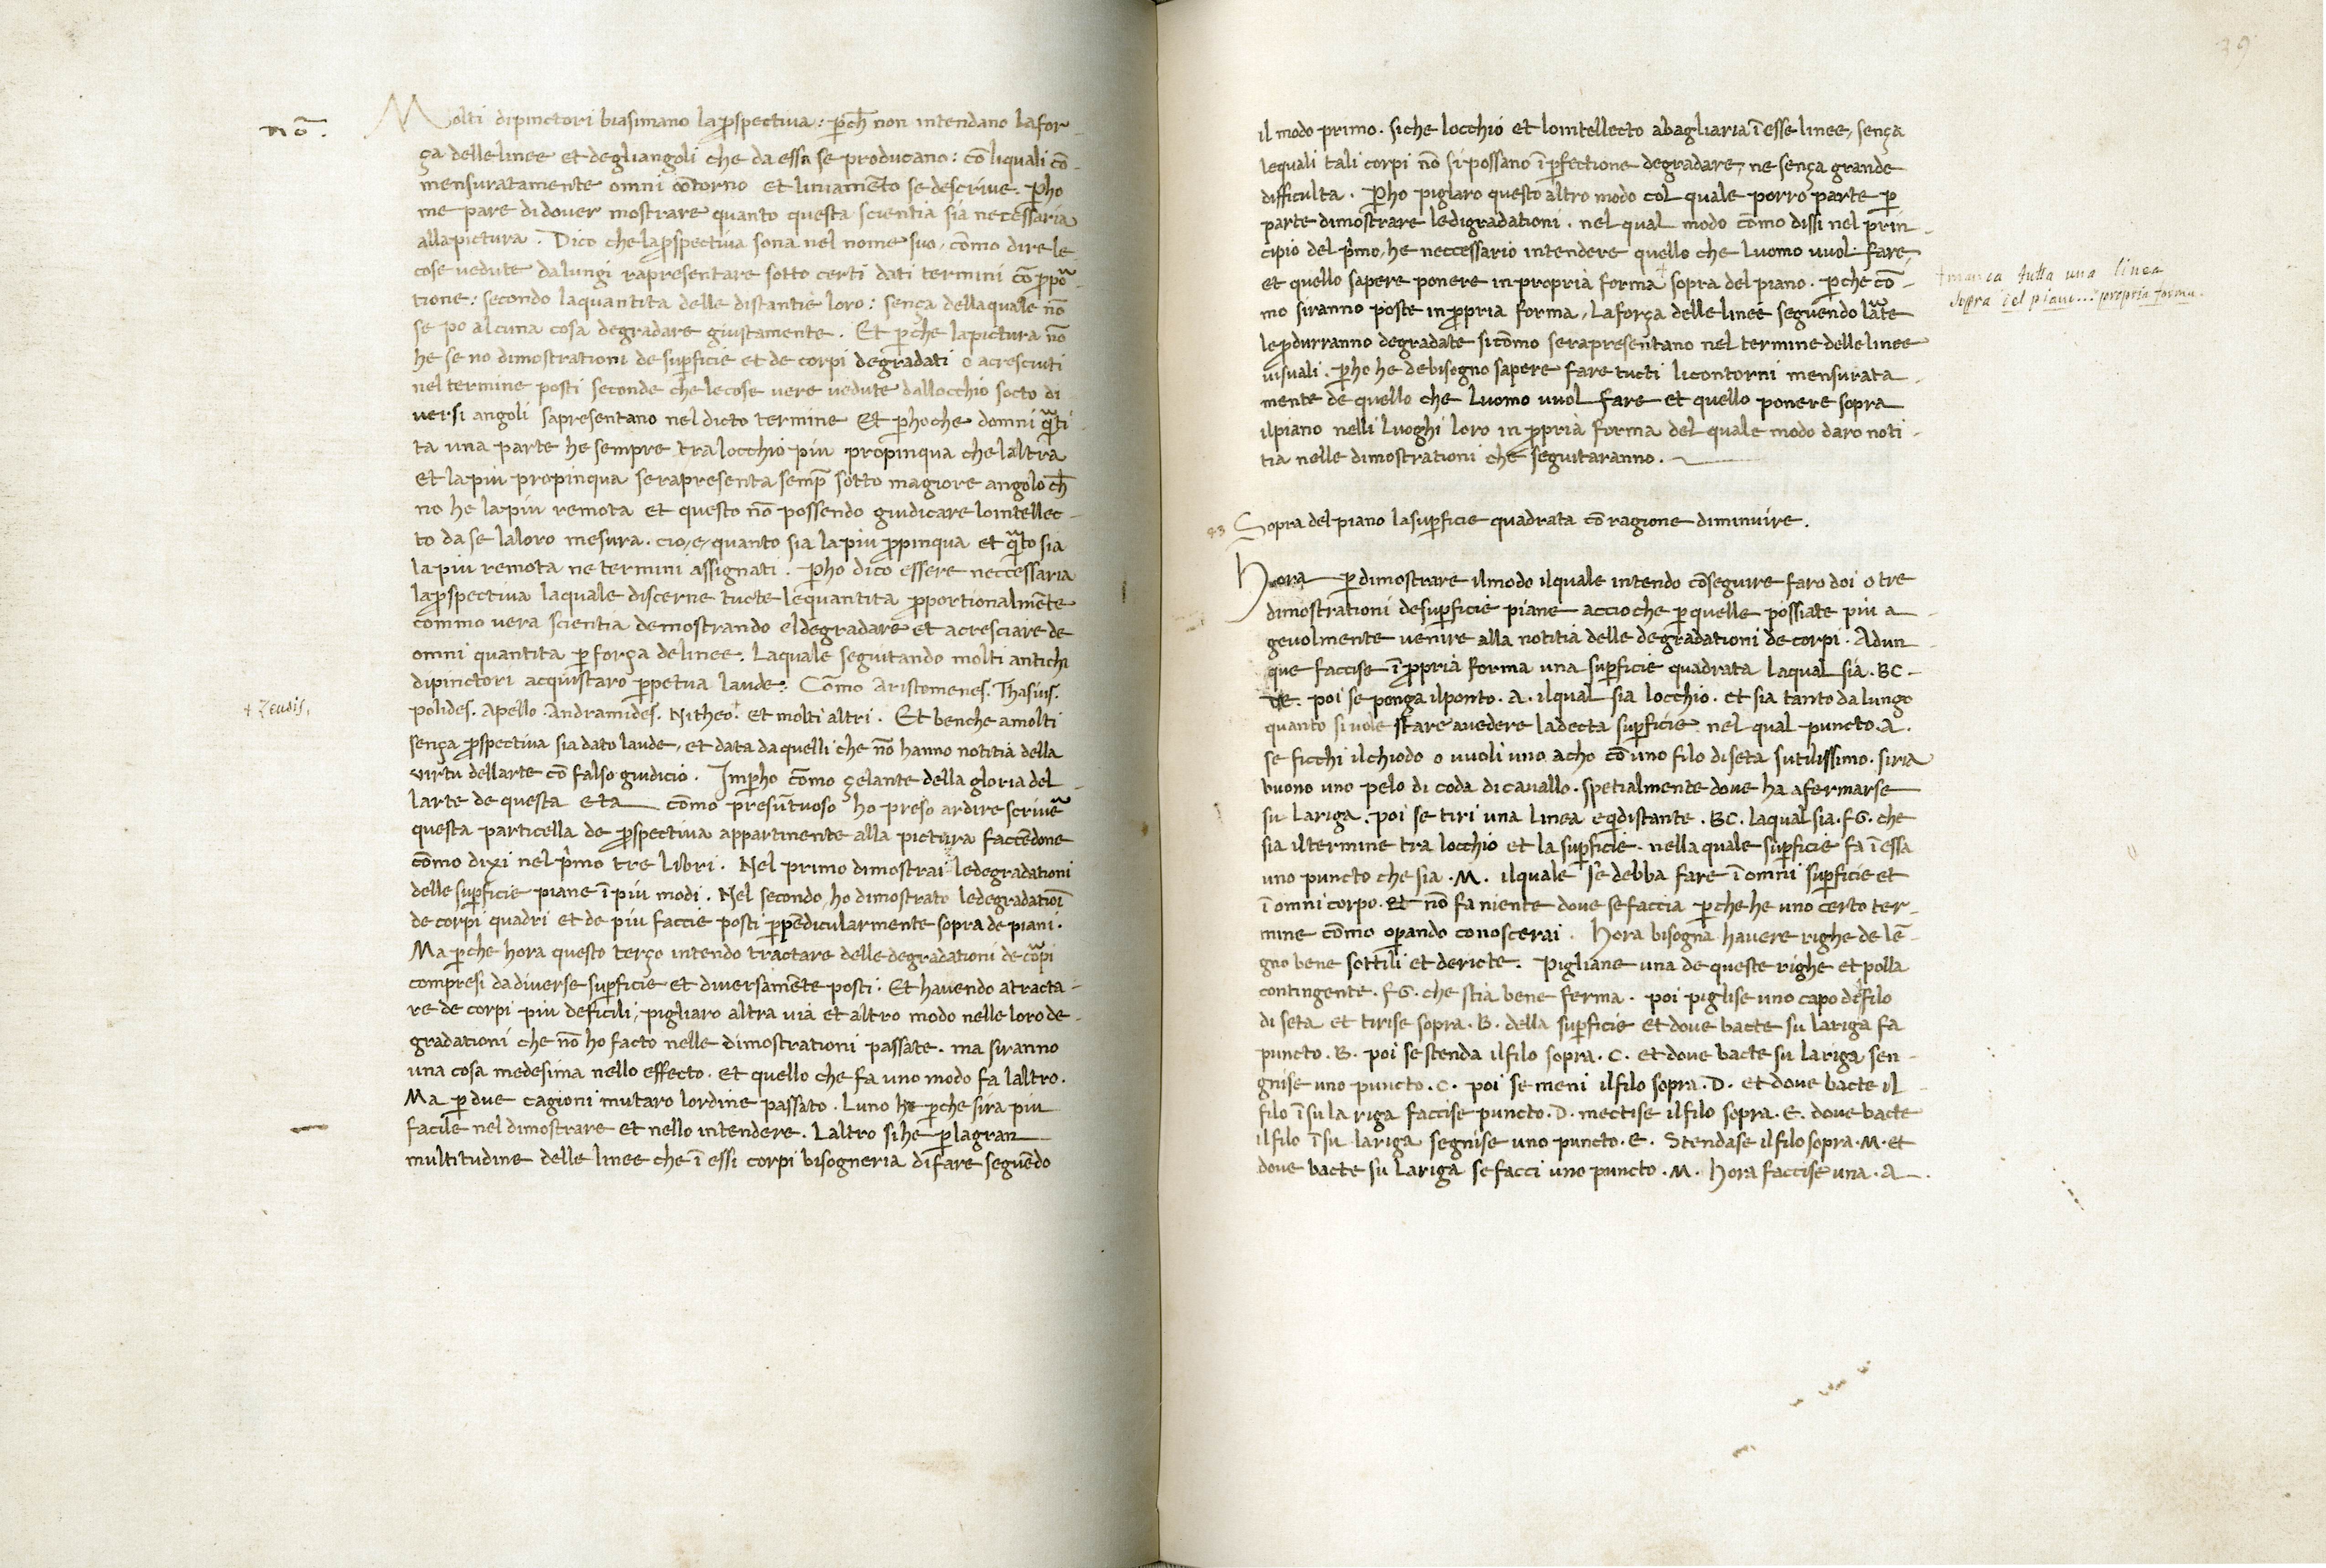 nō.
Molti dipinctori biasimano la p̱spectiva: p̱ch̄ non intendano la for-
ça delle linee et degli angoli che da essa se producano: cō li quali cō-
mensuratamente omni cōtorno et liniamēto se descrive. P̱ho
me pare di dover mostrare quanto questa scientia sia necessaria
alla pictura. Dico che la p̱spectiva sona nel nome suo, cōmo dire le
cose vedute da lungi rapresentare sotto certi dati termini cō p̱po̱
tione: secondo la quantita delle distantie loro: sença della quale nō
se po alcuna cosa degradare giustamente. Et p̱che la pictura nō
he se no dimostrationi de sup̱ficie et de corpi degradati o acresciuti
nel termine posti seconde che le cose vere vedute dallocchio socto di
versi angoli sapresentano nel dicto termine Et p̱ho che domni q̄ti
ta una parte he sempre tra locchio piu propinqua che laltra
et la piu propinqua se rapresenta semp̄ sotto magiore angolo ch̄
no he la piu remota et questo nō possendo giudicare lointellec-
to da se la loro mesura. cio, e, quanto sia la piu p̱pinqua et q̄to sia
la piu remota ne termini assignati. P̱ho dico essere neccessaria
la p̱spectiva la quale discerne tucte le quantita p̱portionalmēte
commo vera scientia demostrando el degradare et acresciare de
omni quantita p̱ força de linee. Laquale seguitando molti antichi
dipinctori acquistaro p̱petua laude. Cōmo Aristomenes. Thasius.
+ Zeusis.
polides. Apello. Andramides. Nitheo.+ et molti altri. Et benche a molti
sença p̱spectiva sia dato laude, et data da quelli che nō hanno notitia della
virtu dellarte cō falso giudicio. Imp̱ho cōmo çelante della gloria del
larte de questa eta cōmo presūtuoso ho preso ardire scrivē
questa particella de p̱spectiva appartinente alla pictura faccēdone
cōmo dixi nel p̄mo tre libri. Nel primo dimostrai le degradationi
delle sup̱ficie piane ī piu modi. Nel secondo ho dimostrato le degradatioī
de corpi quadri et de piu faccie posti p̱pēdicularmente sopra de piani.
Ma p̱che hora questo terço intendo tractare delle degradationi de co̱pi
compresi da diverse sup̱ficie et diversamēte posti. Et havendo a tracta-
re de corpi piu deficili, pigliaro altra via et altro modo nelle loro de-
gradationi che nō ho facto nelle dimostrationi passate. ma siranno
una cosa medesima nello effecto. et quello che fa uno modo fa laltro.
Ma p̱ due cagioni mutaro lordine passato. Luno he p̱che sira piu
facile nel dimostrare et nello intendere. Laltro si he p̱ la gran
multitudine delle linee che ī essi corpi bisogneria di fare seguēdo
39
il modo primo. siche locchio et lointellecto abagliaria ī esse linee, sença
lequali tali corpi nō si possano ī p̱fectione degradare, ne sença grande
difficulta. P̱ho piglaro questo altro modo col quale porro parte p̱
parte dimostrare le digradationi. nel qual modo cōmo dissi nel prin-
cipio del p̄mo, he neccessario intendere quello che luomo vuol fare,
et quello sapere ponere in propria forma+ sopra del piano. p̱che cō-
+ manca tutta una linea
sopra del piano... propria forma.
mo siranno poste in p̱pria forma, la força delle linee seguendo larte
le p̱durranno degradate sicōmo se rapresentano nel termine delle linee
visuali. p̱ho he de bisogno sapere fare tucti li contorni mensurata
mente de quello che luomo vuol fare et quello ponere sopra
il piano nelli luoghi loro in p̱pria forma del quale modo daro noti-
tia nelle dimostrationi che seguitaranno.
Sopra del piano la sup̱ficie quadrata cō ragione diminuire.
Hora p̱ dimostrare il modo il quale intendo cōseguire faro doi o tre
dimostrationi de sup̱ficie piane accio che p̱ quelle possiate piu a-
gevolmente venire alla notitia delle degradationi de corpi. Adun
que faccise ī p̱pria forma una sup̱ficie quadrata laqual sia. BC-
DE. poi se ponga il ponto. A. il qual sia locchio. et sia tanto da lungo
quanto si vole stare a vedere la decta sup̱ficie nel qual puncto. A.
se ficchi il chiodo o vuoli uno acho cō uno filo di seta sutilissimo. siria
buono uno pelo di coda di cavallo. spetialmente dove ha a fermarse
su la riga. poi se tiri una linea eq̱distante. BC. laqual sia. FG. che
sia il termine tra locchio et la sup̱ficie. nella quale sup̱ficie fa ī essa
uno puncto che sia. M. il quale se debba fare ī omni sup̱ficie et
ī omni corpo. et nō fa niente dove se faccia p̱che he uno certo ter-
mine cōmo op̱ando conoscerai. Hora bisogna havere righe de lē-
gno bene sottili et dericte. Pigliane una de queste righe et polla
contingente. FG. che stia bene ferma. poi piglise uno capo del filo
di seta et tirise sopra. B. della sup̱ficie et dove bacte su la riga fa
puncto. B. poi se stenda il filo sopra. C. et dove bacte su la riga sen-
gnise uno puncto. C. poi se meni il filo sopra. D. et dove bacte il
filo ī su la riga faccise puncto. D. mectise il filo sopra. E. dove bacte
il filo ī su la riga segnise uno puncto. E. Stendase il filo sopra. M. et
dove bacte su la riga se facci uno puncto. M. Hora faccise una. A.